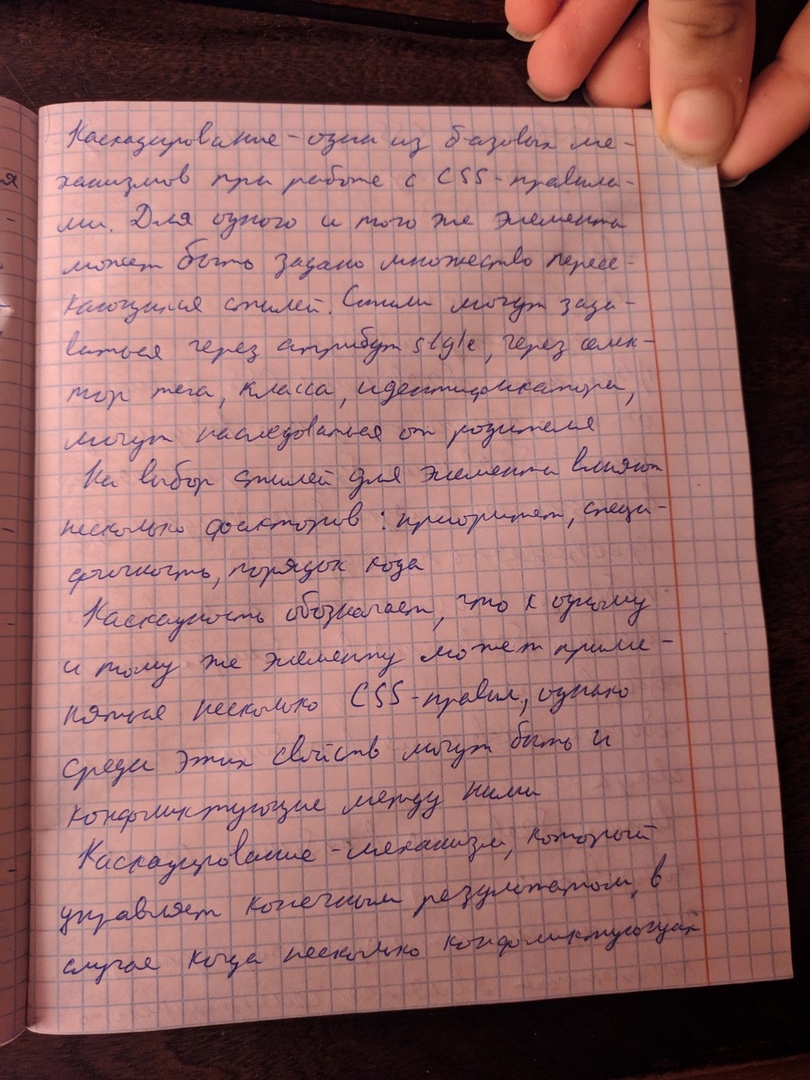 Каскадирование - один из базовых ме-
ханизмов при работе с CSS-правила-
ми. Для одного и того же элемента
может быть задано множество пересе-
кающихся стилей. Стили могут зада-
ваться через атрибут style, через селек-
тор тега, класса, идентификатора,
могут наследоваться от родителя
На выбор стилей для элемента влияют
несколько факторов: приоритет, специ-
фичность, порядок кода
Каскадность обозначает, что к одному
и тому же элементу может приме-
няться несколько CSS-правил, однако
среди этих свойств могут быть и
конфликтующие между ними
Каскадирование - механизм, который
управляет конечным результатом, в
случае когда несколько конфликтующих